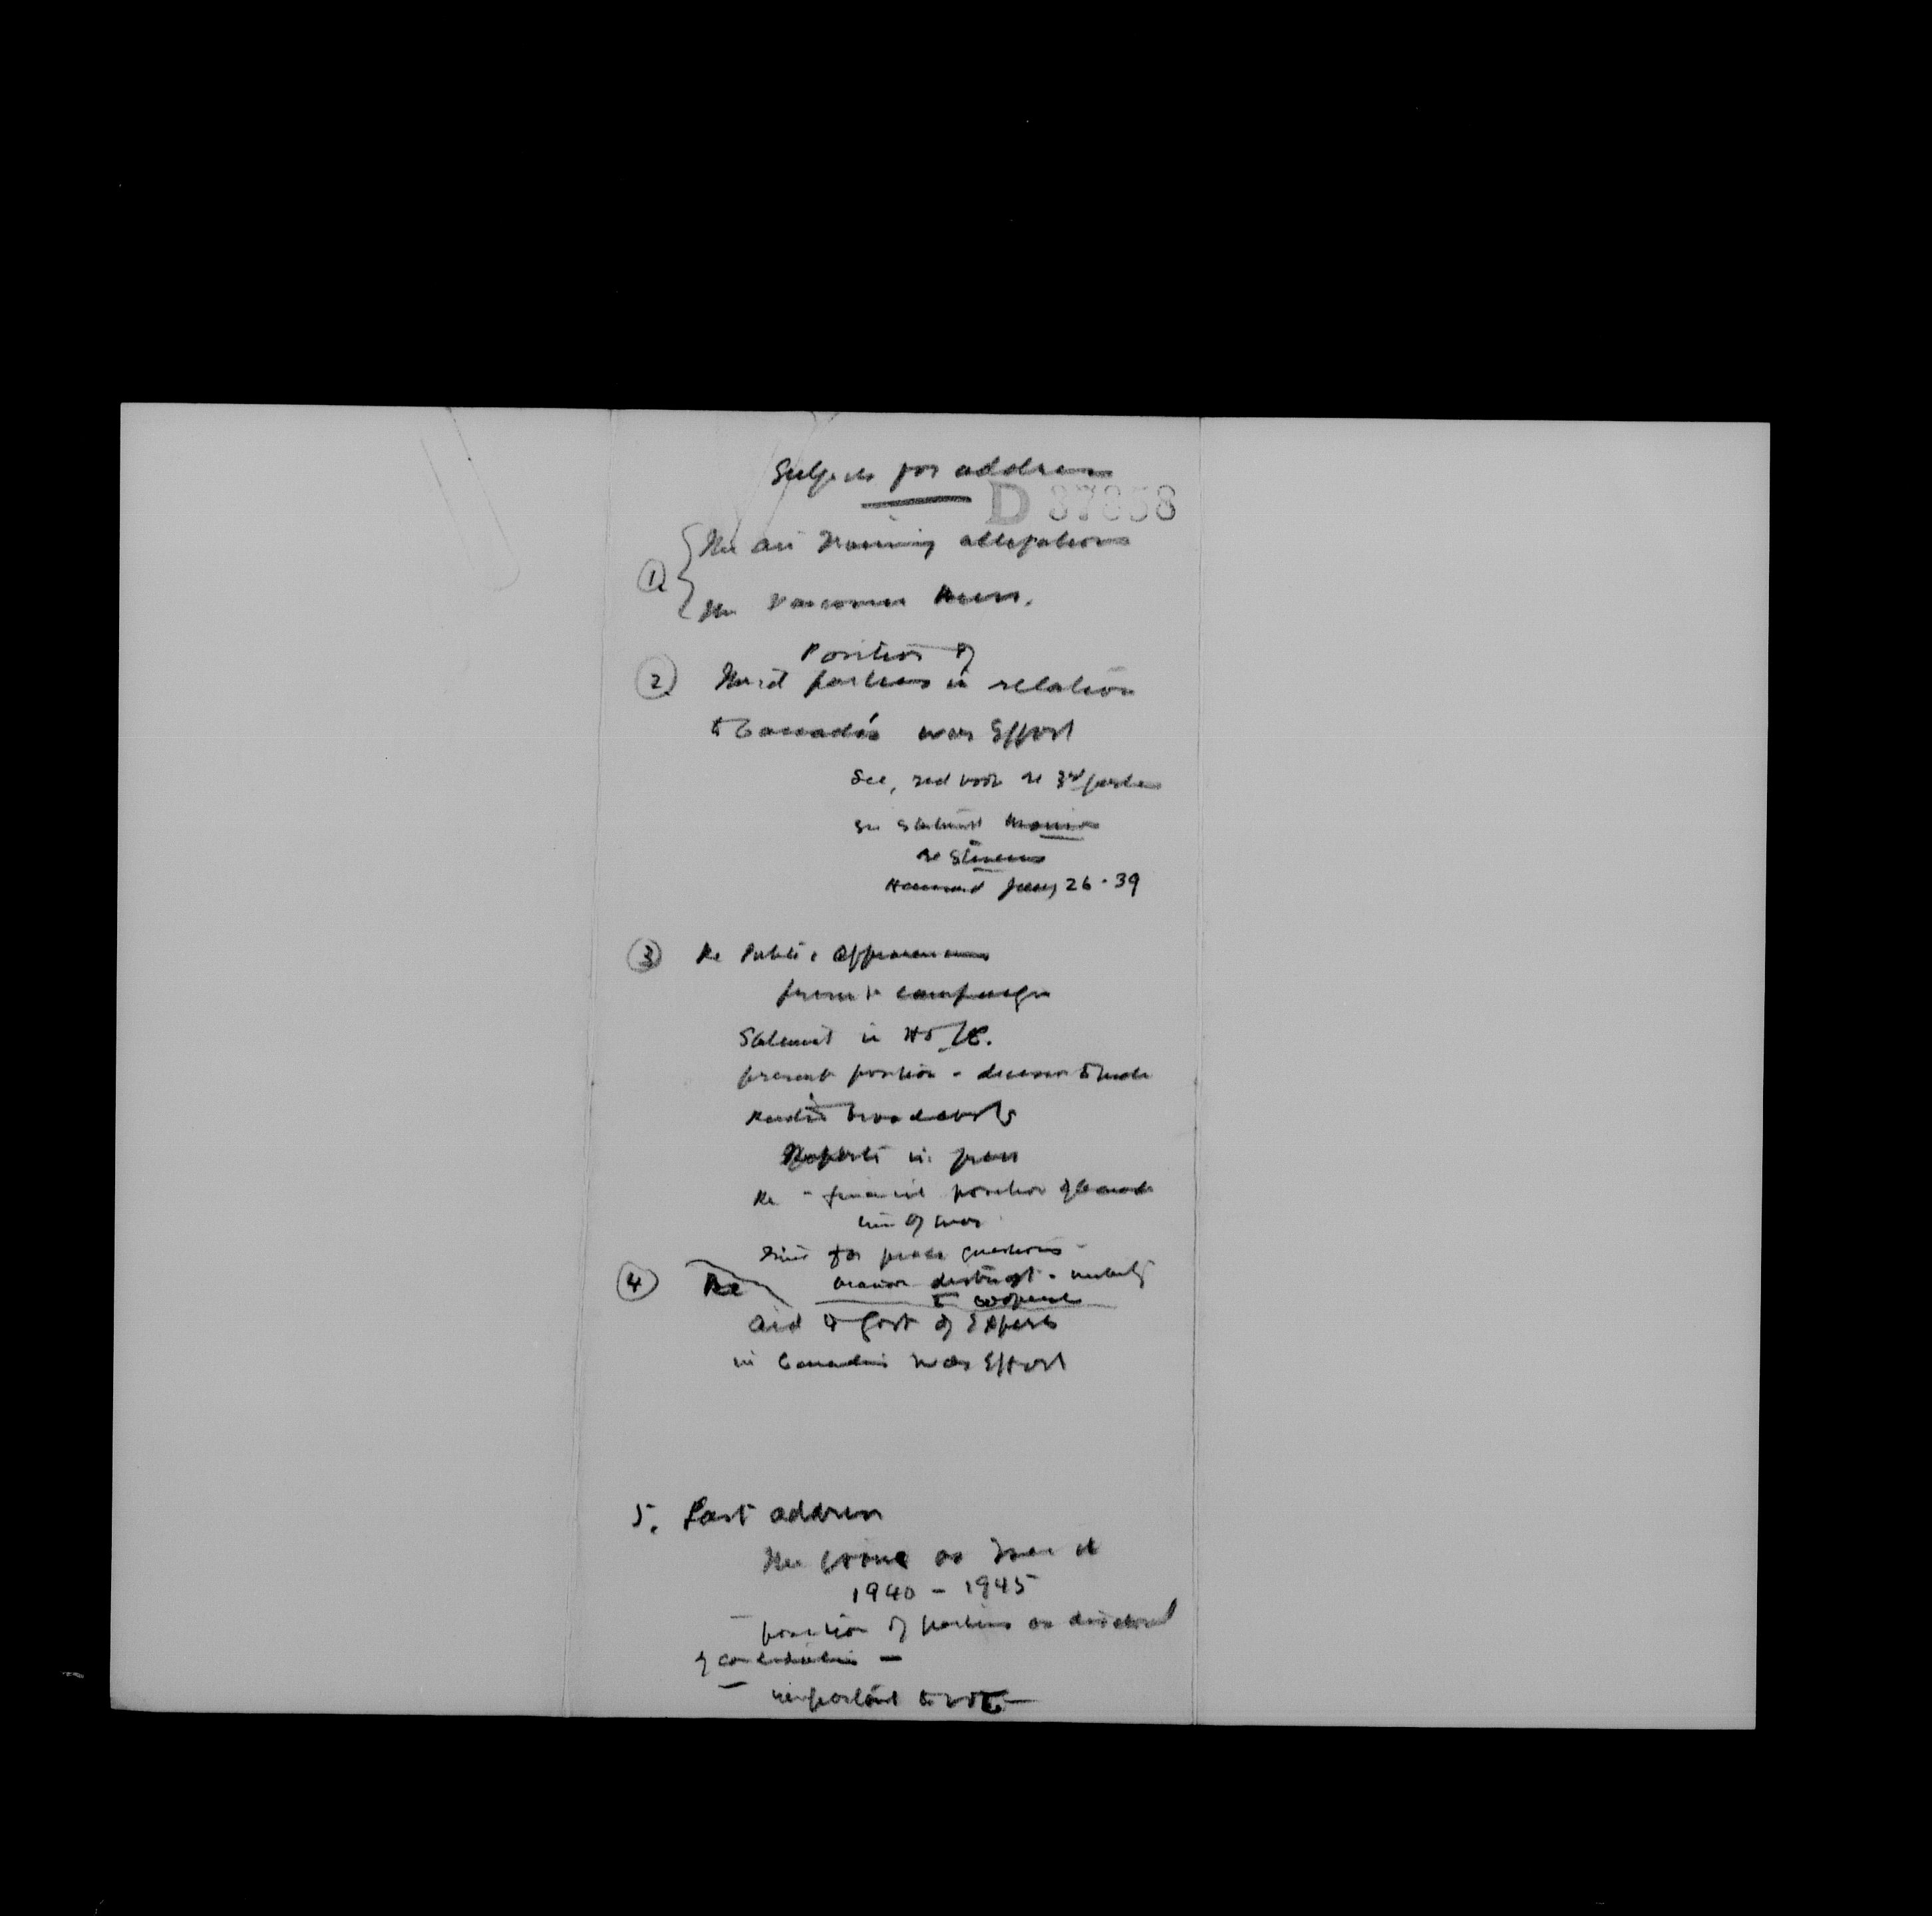 Subjects for address
D 37858
① The Air Training allegations
The Vancouver
Position of
② Third parties in relation
to Canada's war Effort
See, red book re 3rd parties
See statement
re Stevens
Hansard Jany 26 - 39
③ Re Public Appearances
present campaign
Statement in H of C.
present position - decision to
Radio broadcasts
Reports in press
Re - financial position of Canada
time of war
time for questions
④ Re distrust -
to cooperate
Aid to Govt of Experts
in Canada's war Effort
5. Last address
The as I see it
1940 - 1945
- position of parties as
of candidates -
important to vote